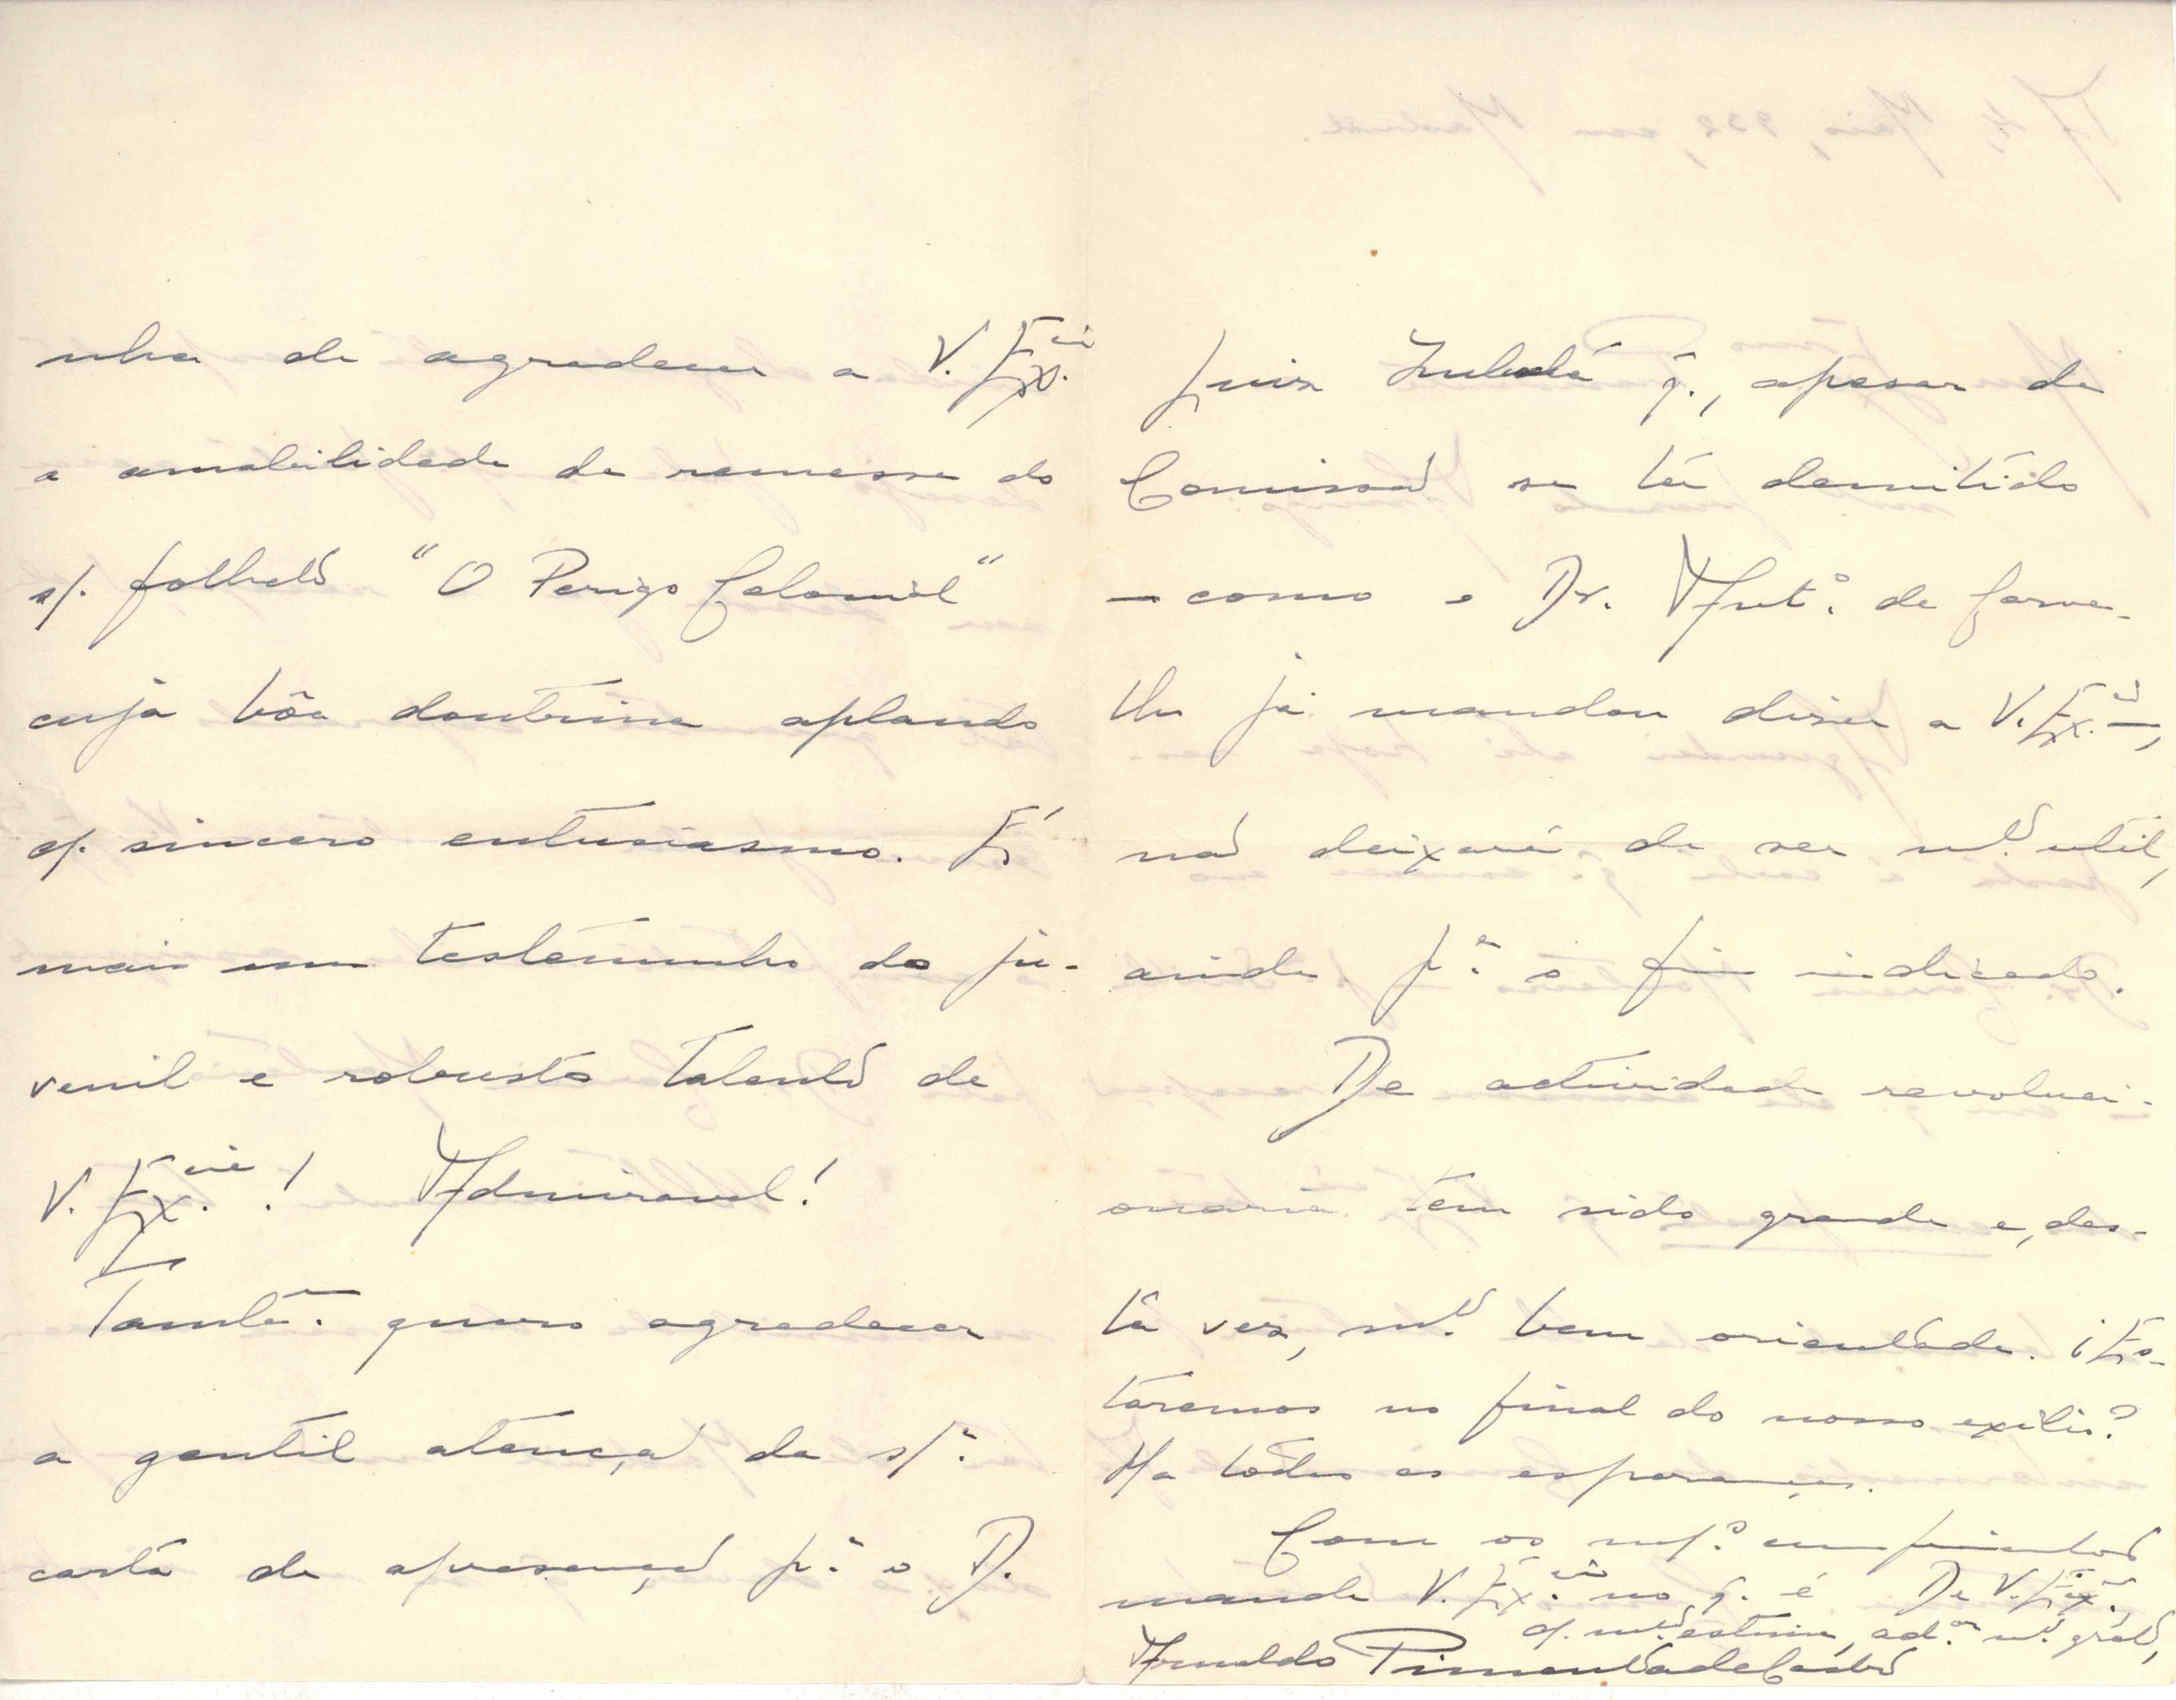 nha de agradecer a V. Ex.cia
a amabilidade da remessa do
s/. folheto "O Perigo Colonial"
cuja bôa doutrina aplaudo
c/. sincero entusiasmo. É
mais um testemunho do ju-
venil e robusto talento de
V. Ex.cia! Admiravel!
Tambem. quero agradecer
a gentil atenção da s/.a
carta de apresenção p.a o D.
Luiz q., apesar da
Comissão se ter demitido
— como o Dr. Ant.o de Carva-
lho já mandou dizer a V. Ex.a —,
não deixará de ser m.to util,
ainda p.a o fim indicado.
De actividade revoluci-
onaria tem sido grande e, des-
ta vez, m.to bem orientada. ¿Es-
taremos no final do nosso exilio?
Ha todas as esperanças.
Com os m/.os cumprimentos
mande V. Ex.cia no q. é De V. Ex.cia,
c/. m.ta estima, ad.or m.to grato,
Arnaldo Pimenta de Castro